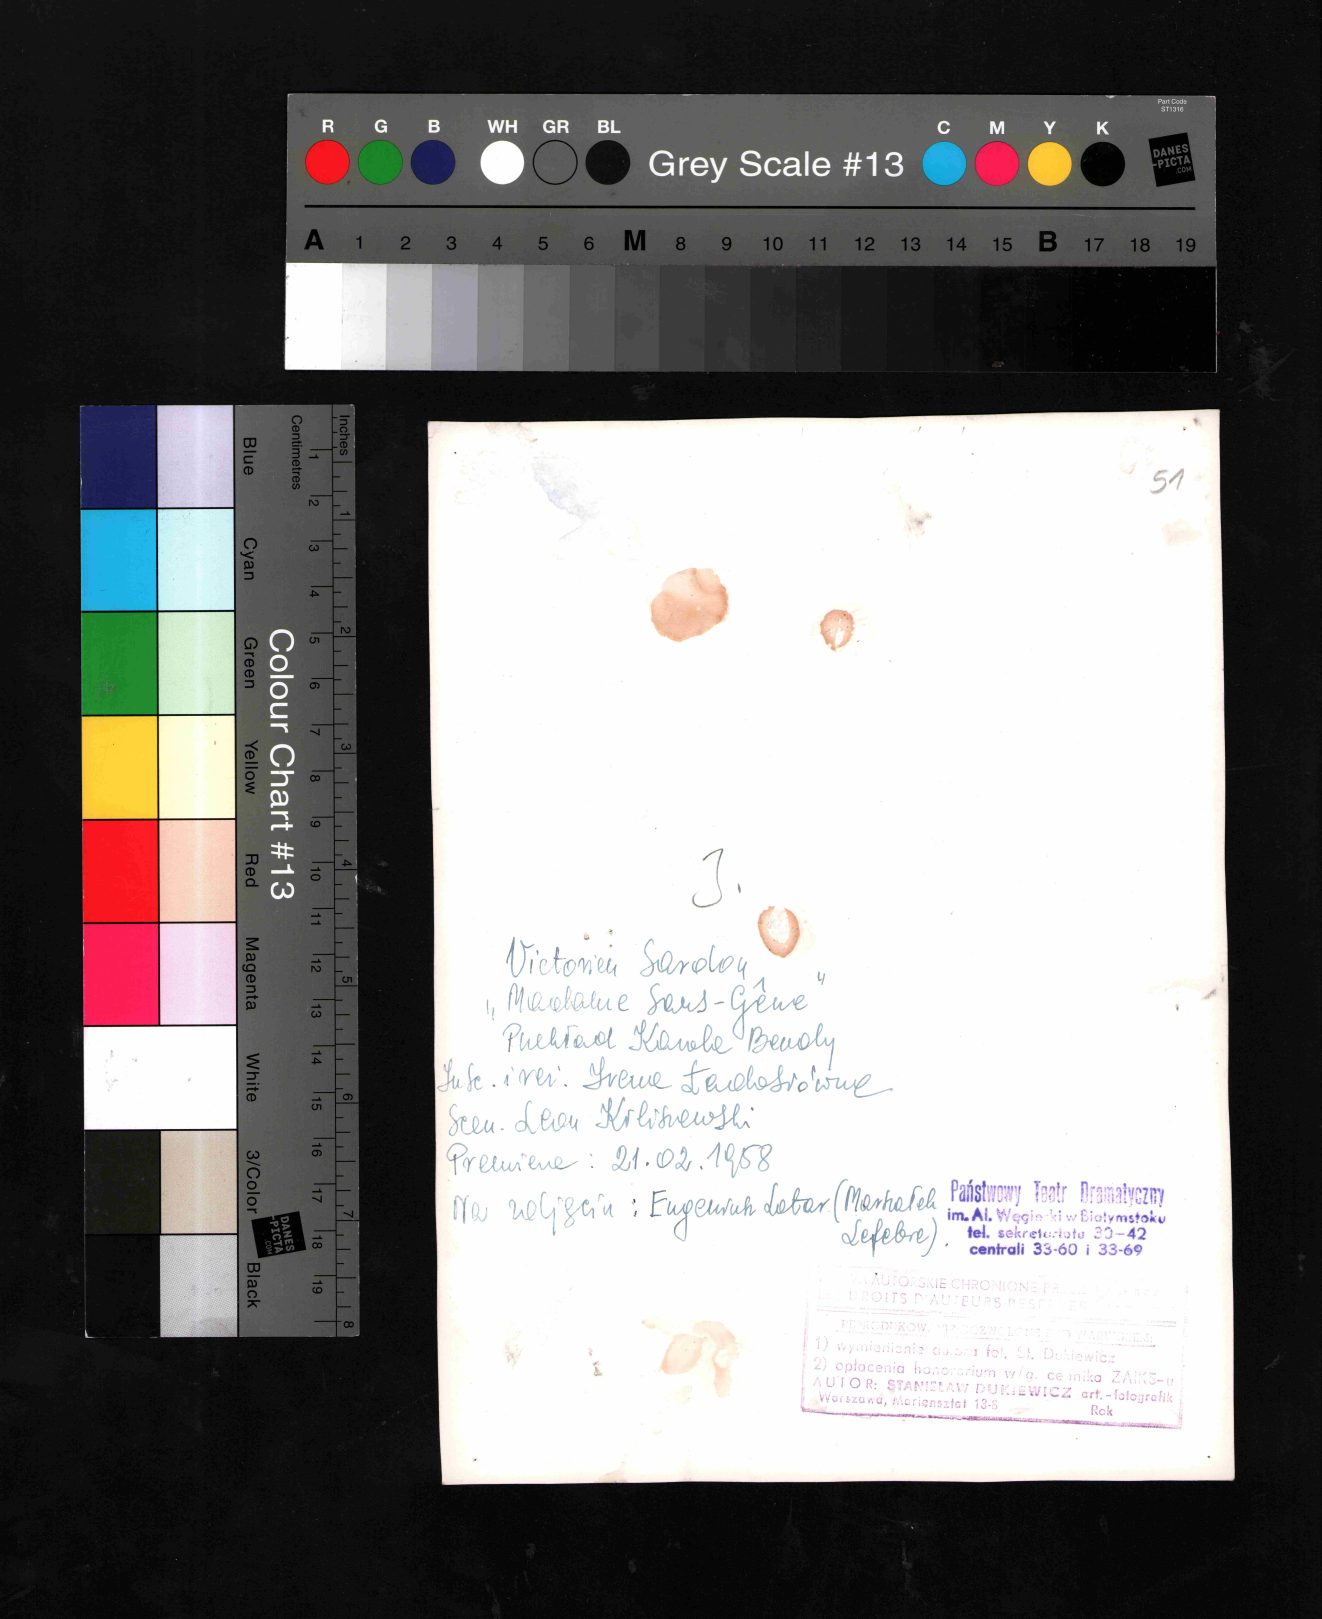 Part Code
ST1316
R G B WH GR BL Grey Scale #13 C M Y K
DANES
-PICTA
.COM
A 1 2 3 4 5 6 M 8 9 10 11 12 13 14 15 B 17 18 19
Inches
Centimetres
1 2 3 4 5 6 7 8 9 10 11 12 13 14 15 16 17 18 19
1 2 3 4 5 6 7 8
Colour Chart #13
Blue
Cyan
Green
Yellow
Red
Magenta
White
3/Color
Black
DANES
-PICTA
.COM
51
J.
Victorien Sardou
„Madame Sans-Gêne"
Przekład Karola Bendy
Insc. i reż. Irena Ładosiówna
Scen. Leon
Premiera: 21.02.1958
Na zdjęciu: Eugeniusz Lotar (Marszałek
Lefebre).
Państwowy Teatr Dramatyczny
im. Al. Węgierki w Białymstoku
tel. sekretariatu 30-42
centrali 33-60 i 33-69
AUTORSKIE CHRONIONE
DROITS D'AUTEURS
1) wymienienie autora fot. St. Dukiewicz
2) opłacenia honorarium w/g. cennika ZAIKS-u
AUTOR: STANISŁAW DUKIEWICZ art.-fotografik
Warszawa, Mariensztat 13-8
Rok